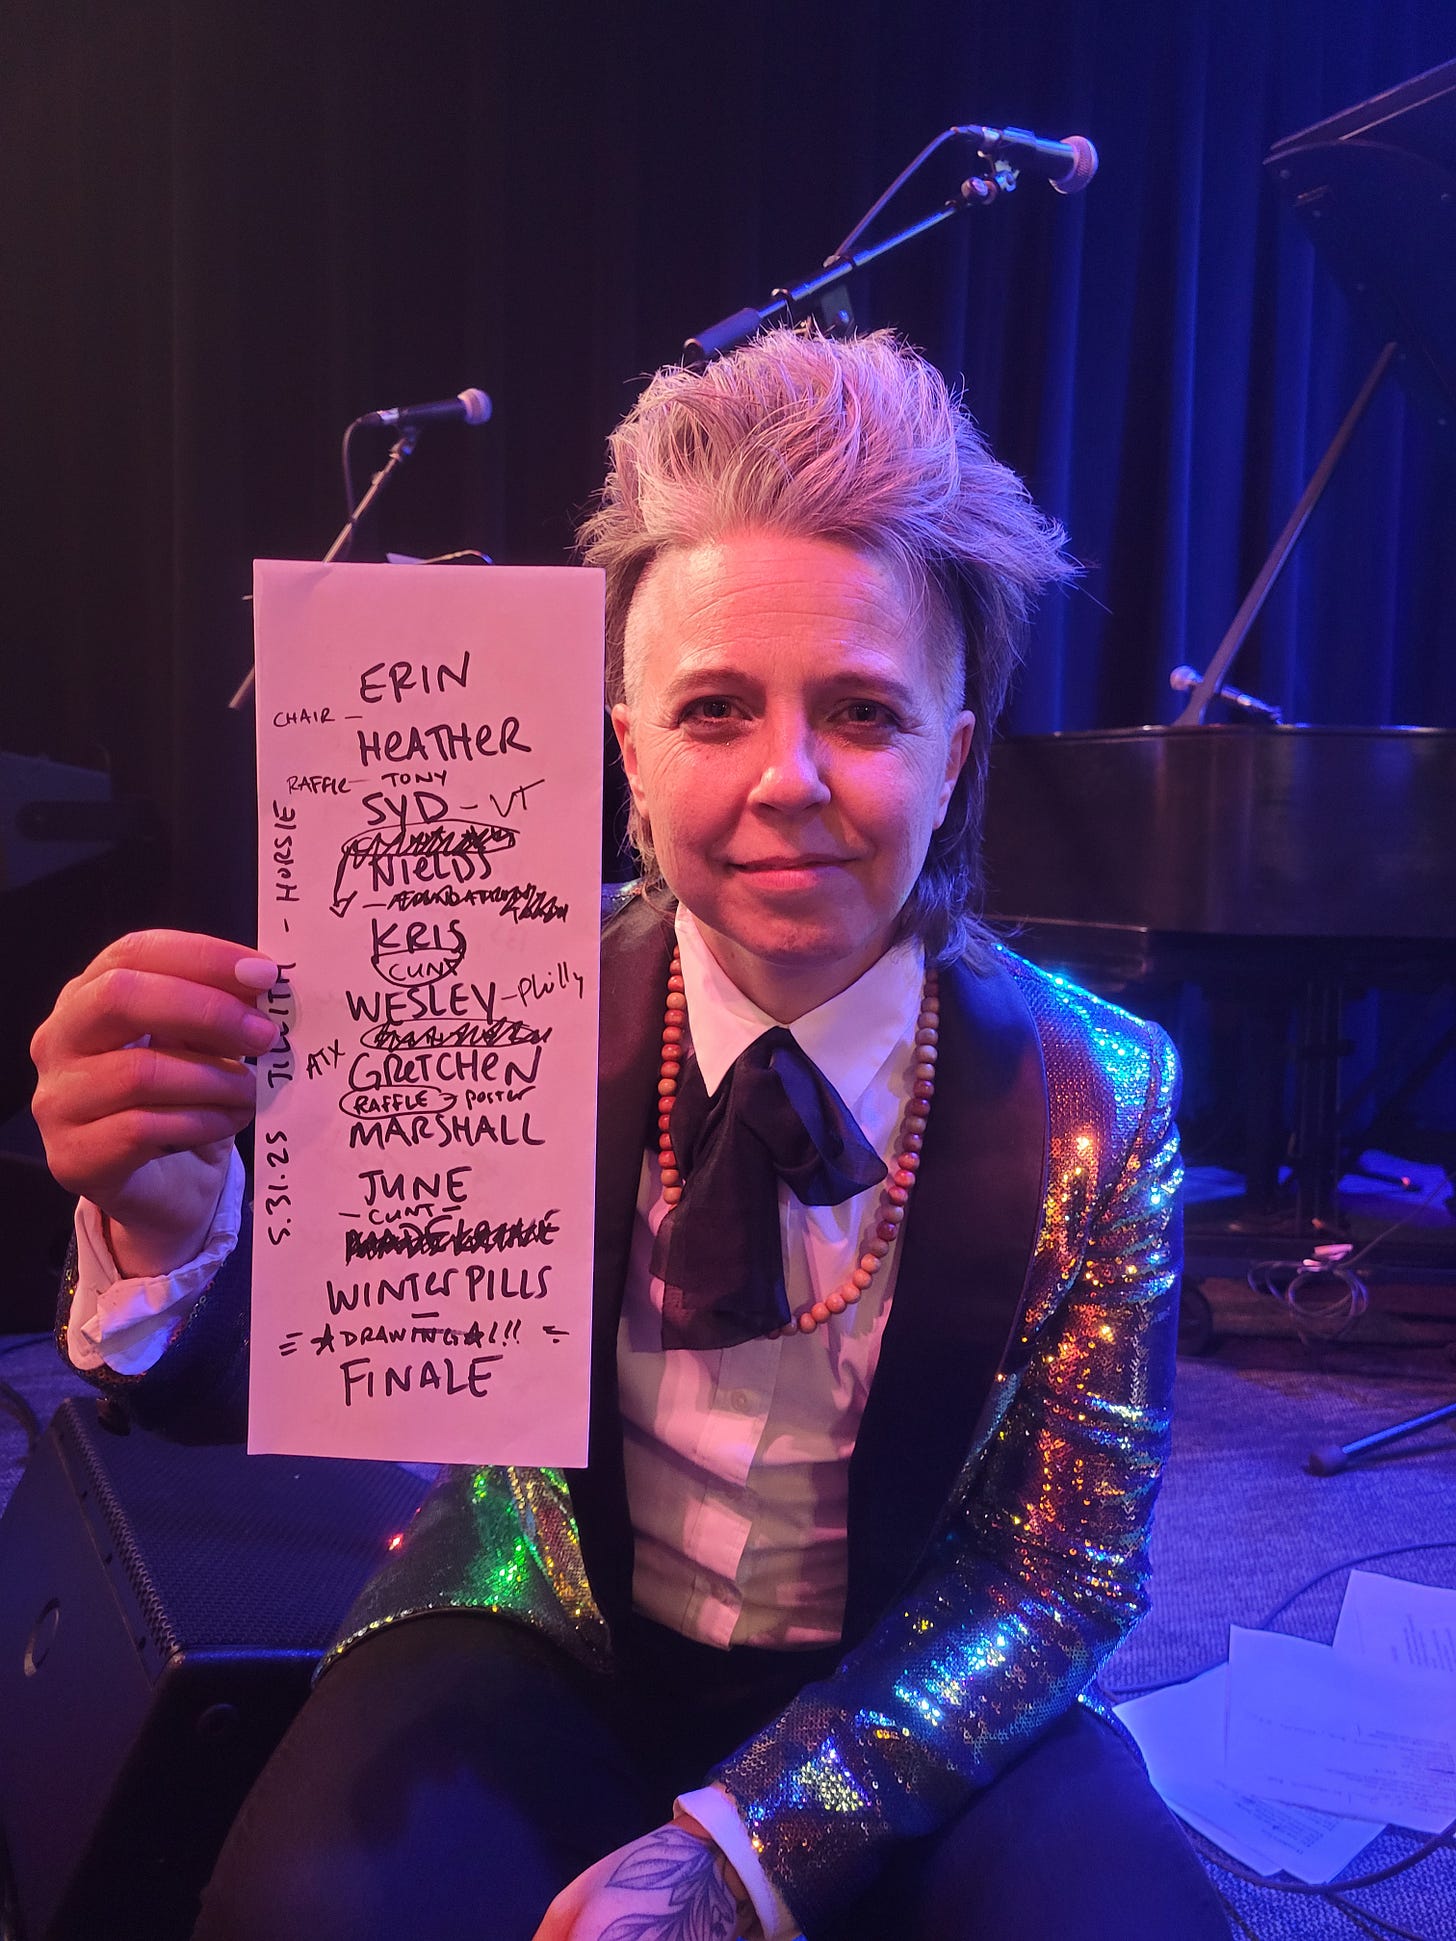 ERIN
CHAIR -
HEATHER
RAFFLE - TONY
SYD - VT
NIELDS
KRIS
CUNT
WESLEY - Philly
ATX
GRETCHEN
RAFFLE → poster
MARSHALL
JUNE
- CUNT -
WINTERPILLS
DRAWING !!
FINALE
5.31.25 JILLITH - HORSIE